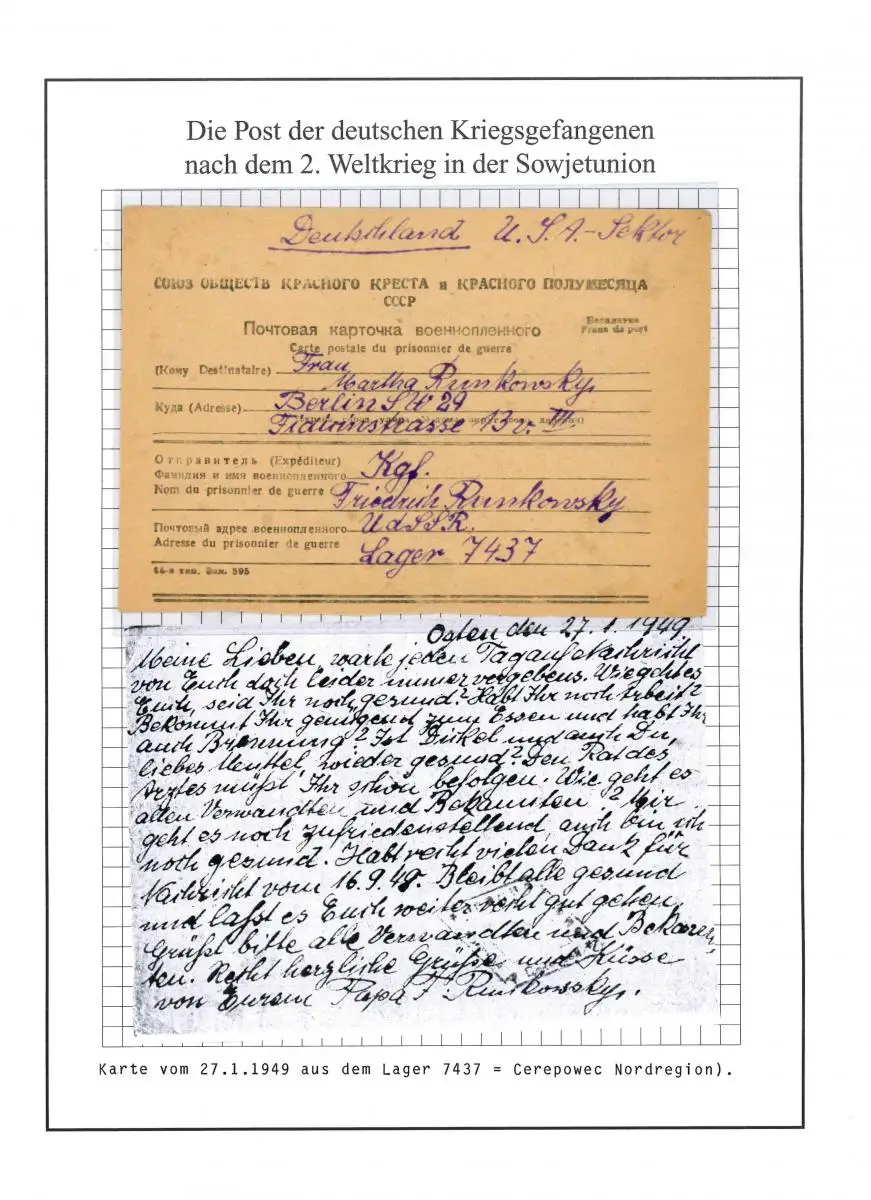 Die Post der deutschen Kriegsgefangenen
nach dem 2. Weltkrieg in der Sowjetunion
Deutschland U.S.A.-Sektor
СОЮЗ ОБЩЕСТВ КРАСНОГО КРЕСТА и КРАСНОГО ПОЛУМЕСЯЦА
СССР
Почтовая карточка военнопленного
Бесплатно
Franc de port
Carte postale du prisonnier de guerre
(Кому Destinataire) Frau
Martha Runkowsky,
Куда (Adresse) Berlin SW 29
13 v. III
Отправитель (Expéditeur) Kgf.
Фамилия и имя военнопленного
Nom du prisonnier de guerre Friedrich Runkowsky
Почтовый адрес военнопленного UdSSR.
Adresse du prisonnier de guerre Lager 7437
16-я тип. Зак. 395
Osten den 27.1.1949.
Meine Lieben, warte jeden Tag auf Nachricht
von Euch doch leider immer vergebens. Wie geht es
Euch, seid Ihr noch gesund? Habt Ihr noch Arbeit?
Bekommt Ihr genügend zum Essen und habt Ihr
auch Brennung? Ist und auch Du,
liebes wieder gesund? Den Rat des
Arztes müßt Ihr schön befolgen. Wie geht es
allen Verwandten und Bekannten? Mir
geht es noch zufriedenstellend, auch bin ich
noch gesund. Habt recht vielen Dank für
Nachricht vom 16.9.48. Bleibt alle gesund
und laßt es Euch weiter recht gut gehen.
Grüßt bitte alle Verwandten und Bekann-
ten. Recht herzliche Grüße und Küsse
von Eurem Papa F. Runkowsky.
Karte vom 27.1.1949 aus dem Lager 7437 = Cerepowec Nordregion).